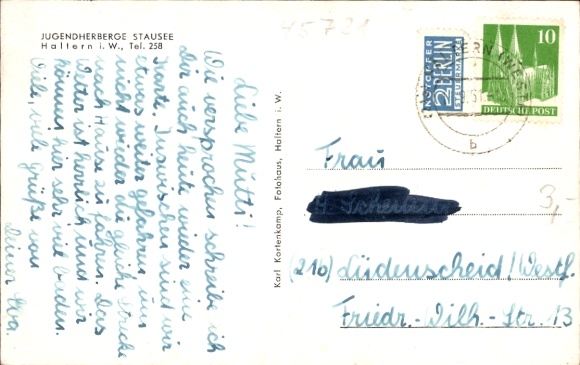 JUGENDHERBERGE STAUSEE
Haltern i. W., Tel. 258
45721
Liebe Mutti!
Wie versprochen schreibe ich
dir auch heute wieder eine
Karte. Inzwischen sind wir
etwas weiter gefahren, um
nicht wieder die gleiche Strecke
nach Hause zu fahren. Das
Wetter ist herrlich und wir
können hier sehr viel baden.
Viele, viele Grüße von
deiner
Karl Kortenkamp, Fotohaus, Haltern i. W.
NOTOPFER
2 BERLIN
STEUERMARKE
10
DEUTSCHE POST
b
Frau
3,-
(21b) Lüdenscheid/Westf.
Friedr.-Wilh.-Str. 13